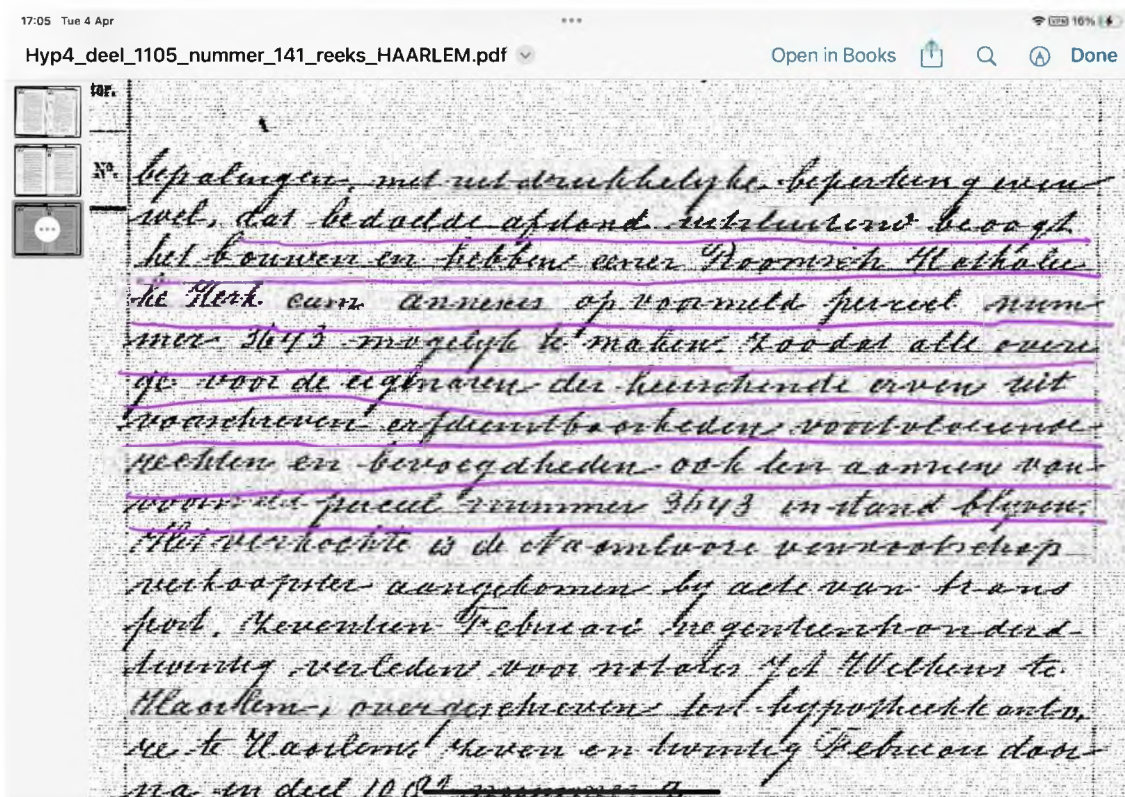 17:05 Tue 4 Apr
VPN 16%
Hyp4_deel_1105_nummer_141_reeks_HAARLEM.pdf
Open in Books
Done
No.
bepalingen, met uitdrukkelyke beperking even
wel, dat bedoelde afstand uitsluitend beoogt
het bouwen en hebben eener Roomsch Katholie
ke Kerk cum annexis op voormeld perceel num
mer 3643 mogelyk te maken. Zoodat alle overi
ge voor de eigenaren der heerschende erven uit
voorschreven erfdienstbaarheden voortvloeiende
rechten en bevoegdheden ook ten aanzien van
voormeld perceel nummer 3643 in stand blyven.
Het verkochte is de Naamlooze vennootschap
verkoopster aangekomen by acte van trans
port, Zeventien Februari negentienhonderd
twintig verleden voor notaris te
Haarlem, overgeschreven ten hypotheekkanto
re te Haarlem zeven en twintig Februari daar
na in deel nummer